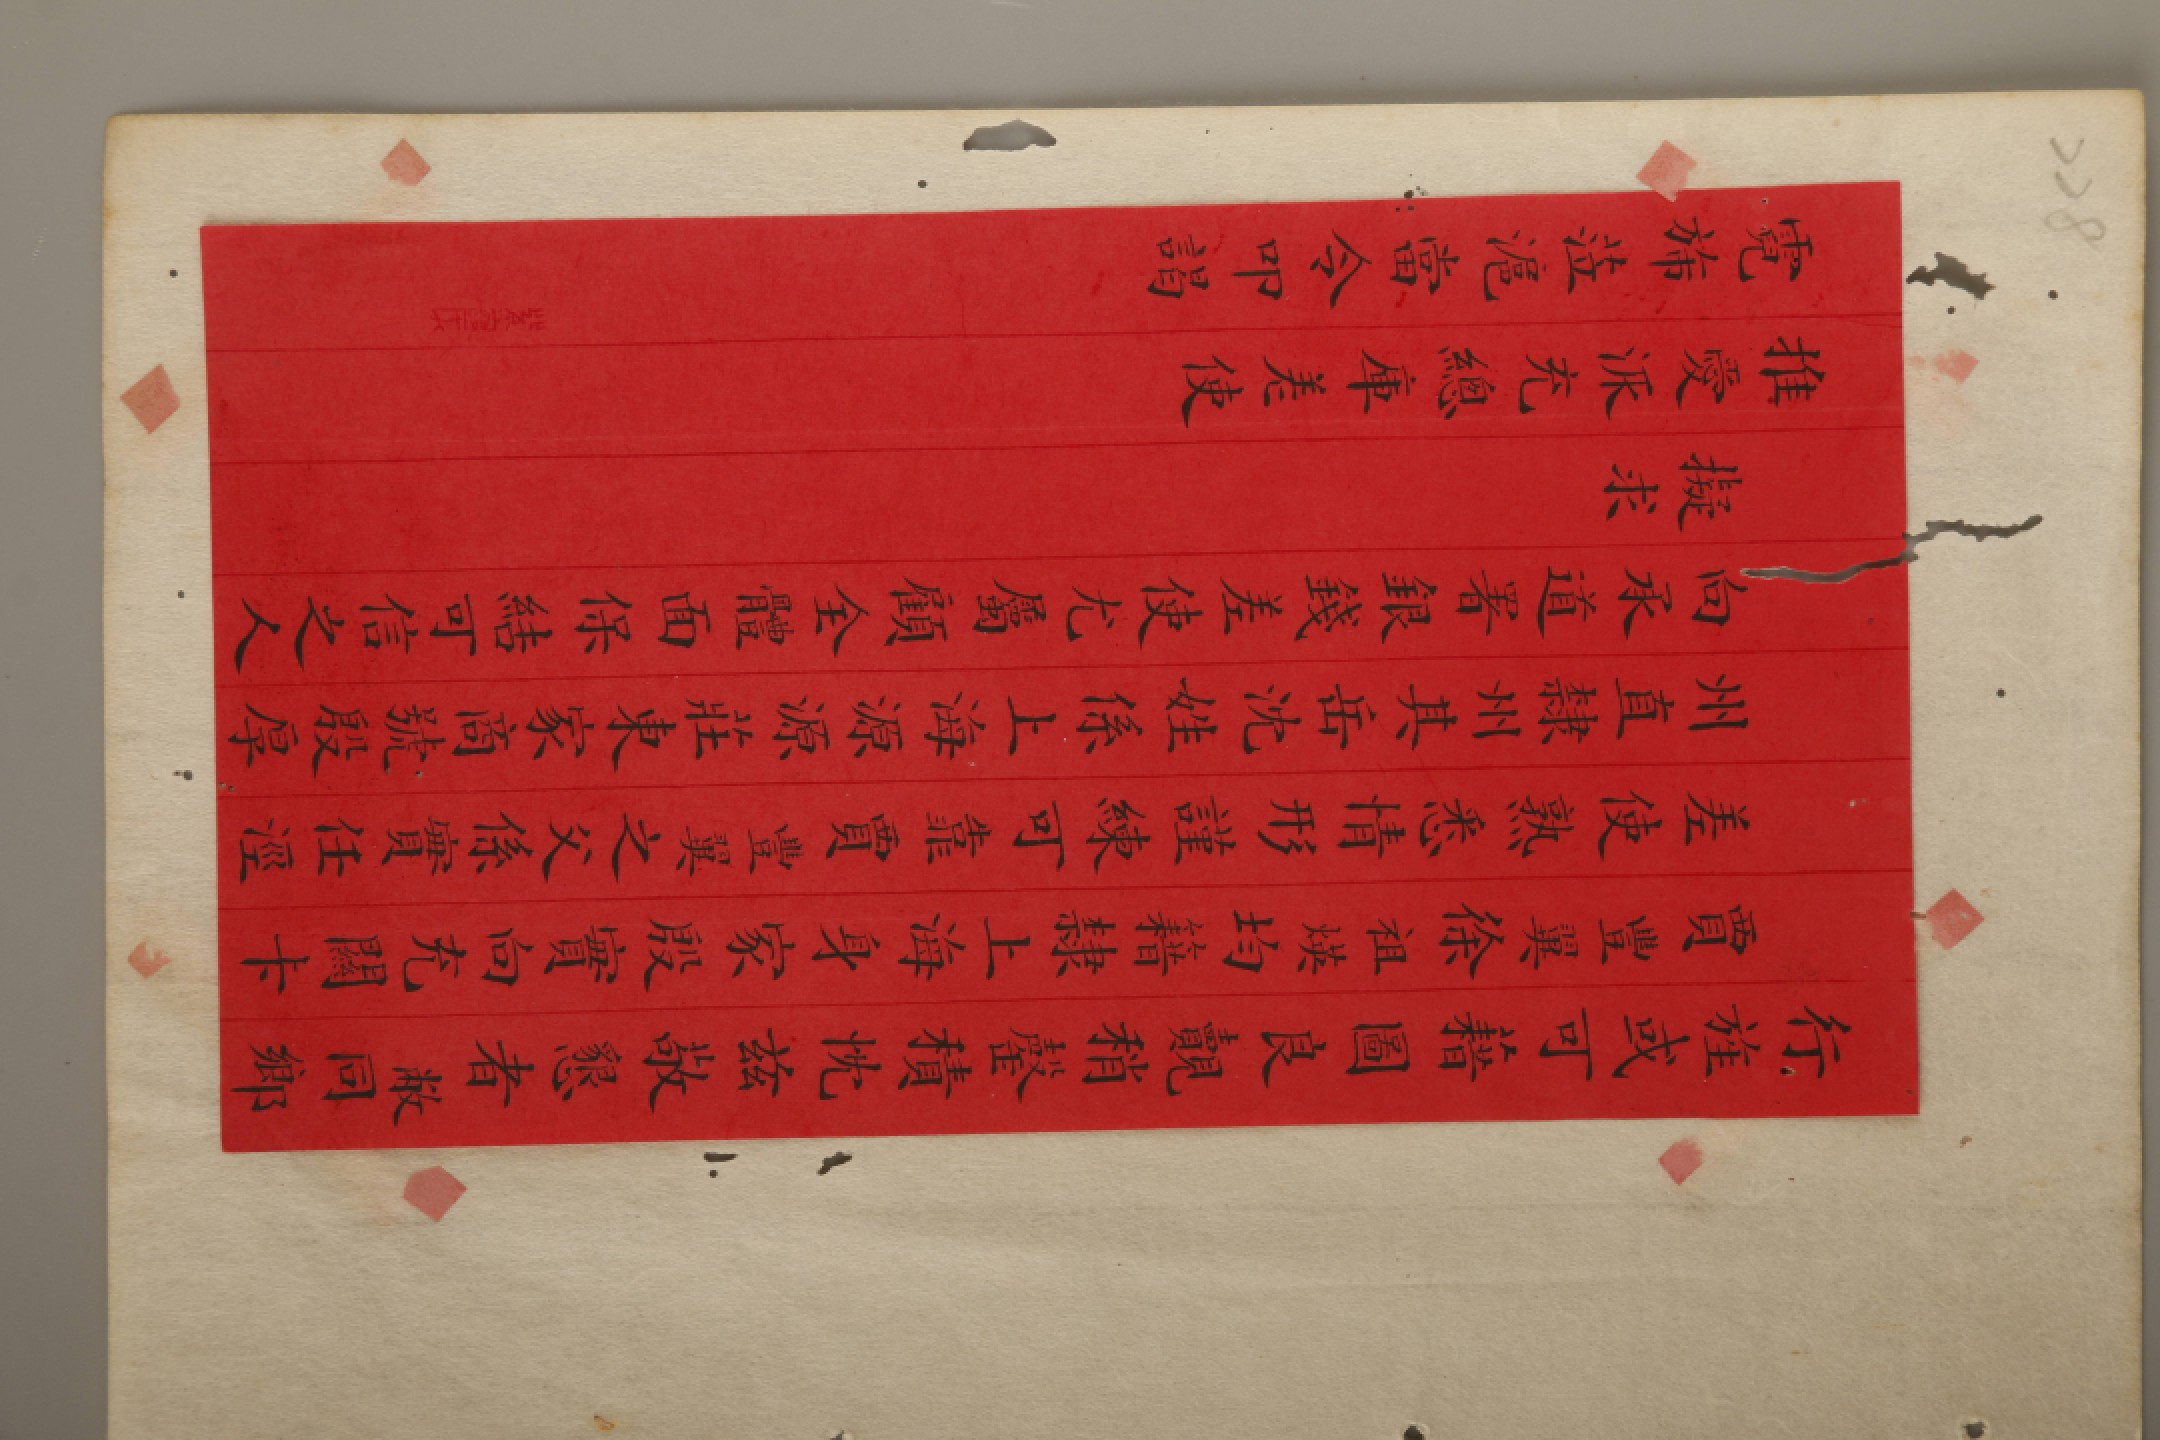 行旌或可藉圖良覿稍罄積忱茲敬懇者敝同鄉
賈豐翼徐祖煐均籍隸上海身家殷實向充關卡
差使熟悉情形謹練可靠賈豐翼之父係實任涇
州直隸州其岳沈姓係上海源源莊東家商號殷厚
向承道署銀錢差使尤屬顧全體面保結可信之人
擬求
推愛派充總庫差使
霓旆蒞滬當令叩謁